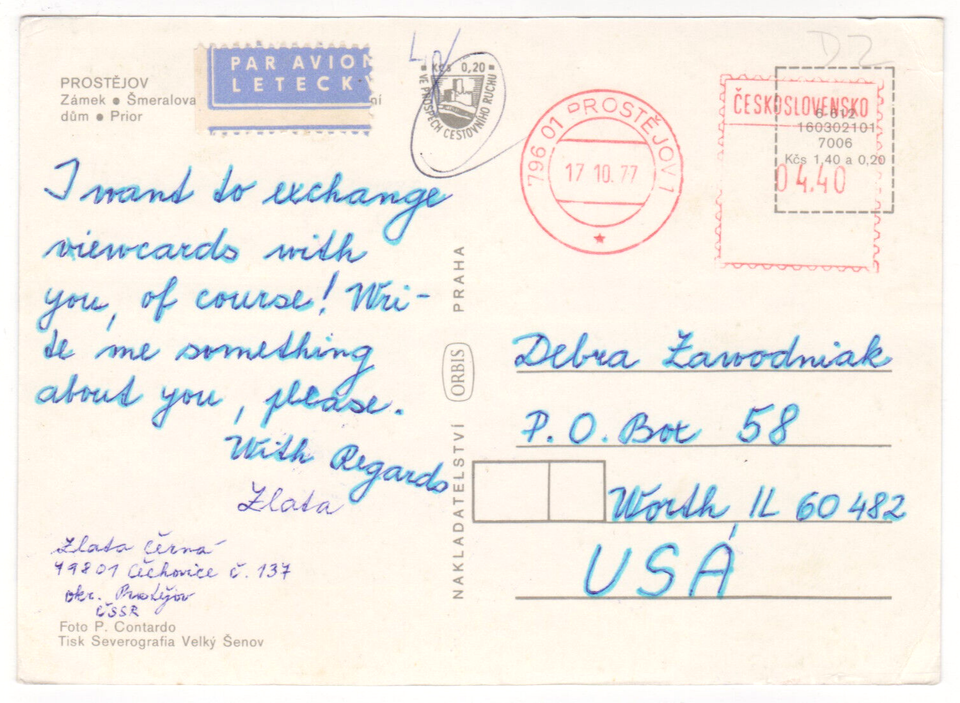 PROSTĚJOV
Zámek • Šmeralova
dům • Prior
PAR AVION
LETECK
Kčs 0,20
VE PROSPĚCH CESTOVNÍHO RUCHU
796 01 PROSTĚJOV 1
17 10. 77
ČESKOSLOVENSKO
04.40
160302101
7006
Kčs 1,40 a 0,20
DZ
I want to exchange
viewcards with
you, of course! Wri-
te me something
about you, please.
With Regards
Zlata
Zlata Černá
79801 Čechovice č. 137
okr. Prostějov
ČSSR
Foto P. Contardo
Tisk Severografia Velký Šenov
NAKLADATELSTVÍ ORBIS PRAHA
Debra Zawodniak
P.O. Box 58
Worth, IL 60482
USA